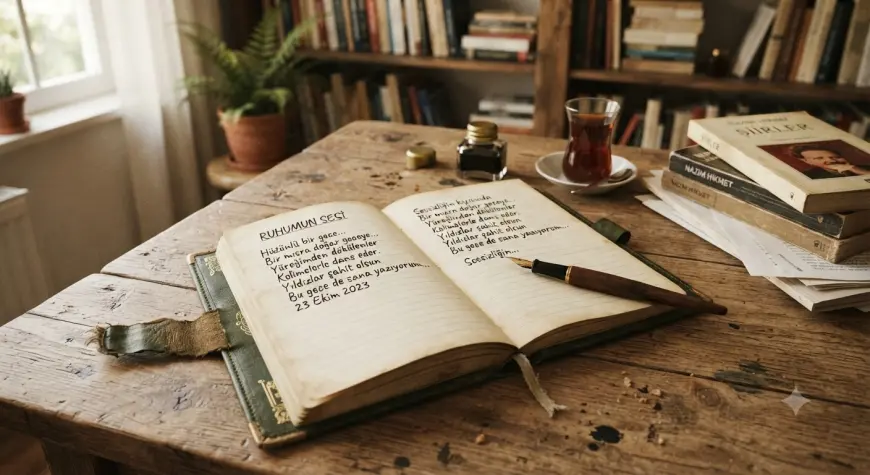 RUHUMUN SESİ
Hüzünlü bir gece...
Bir mısra doğar geceye...
Yüreğimden dökülenler
Kelimelerle dans eder.
Yıldızlar şahit olsun
Bu gece de sana yazıyorum...
23 Ekim 2023
Sessizliğin kıyısında
Bir mısra doğar geceye...
Yüreğimden dökülenler
Kelimelerle dans eder.
Yıldızlar şahit olsun
Bu gece de sana yazıyorum...
Sessizliğin...
ŞİİRLER
NAZIM HİKMET